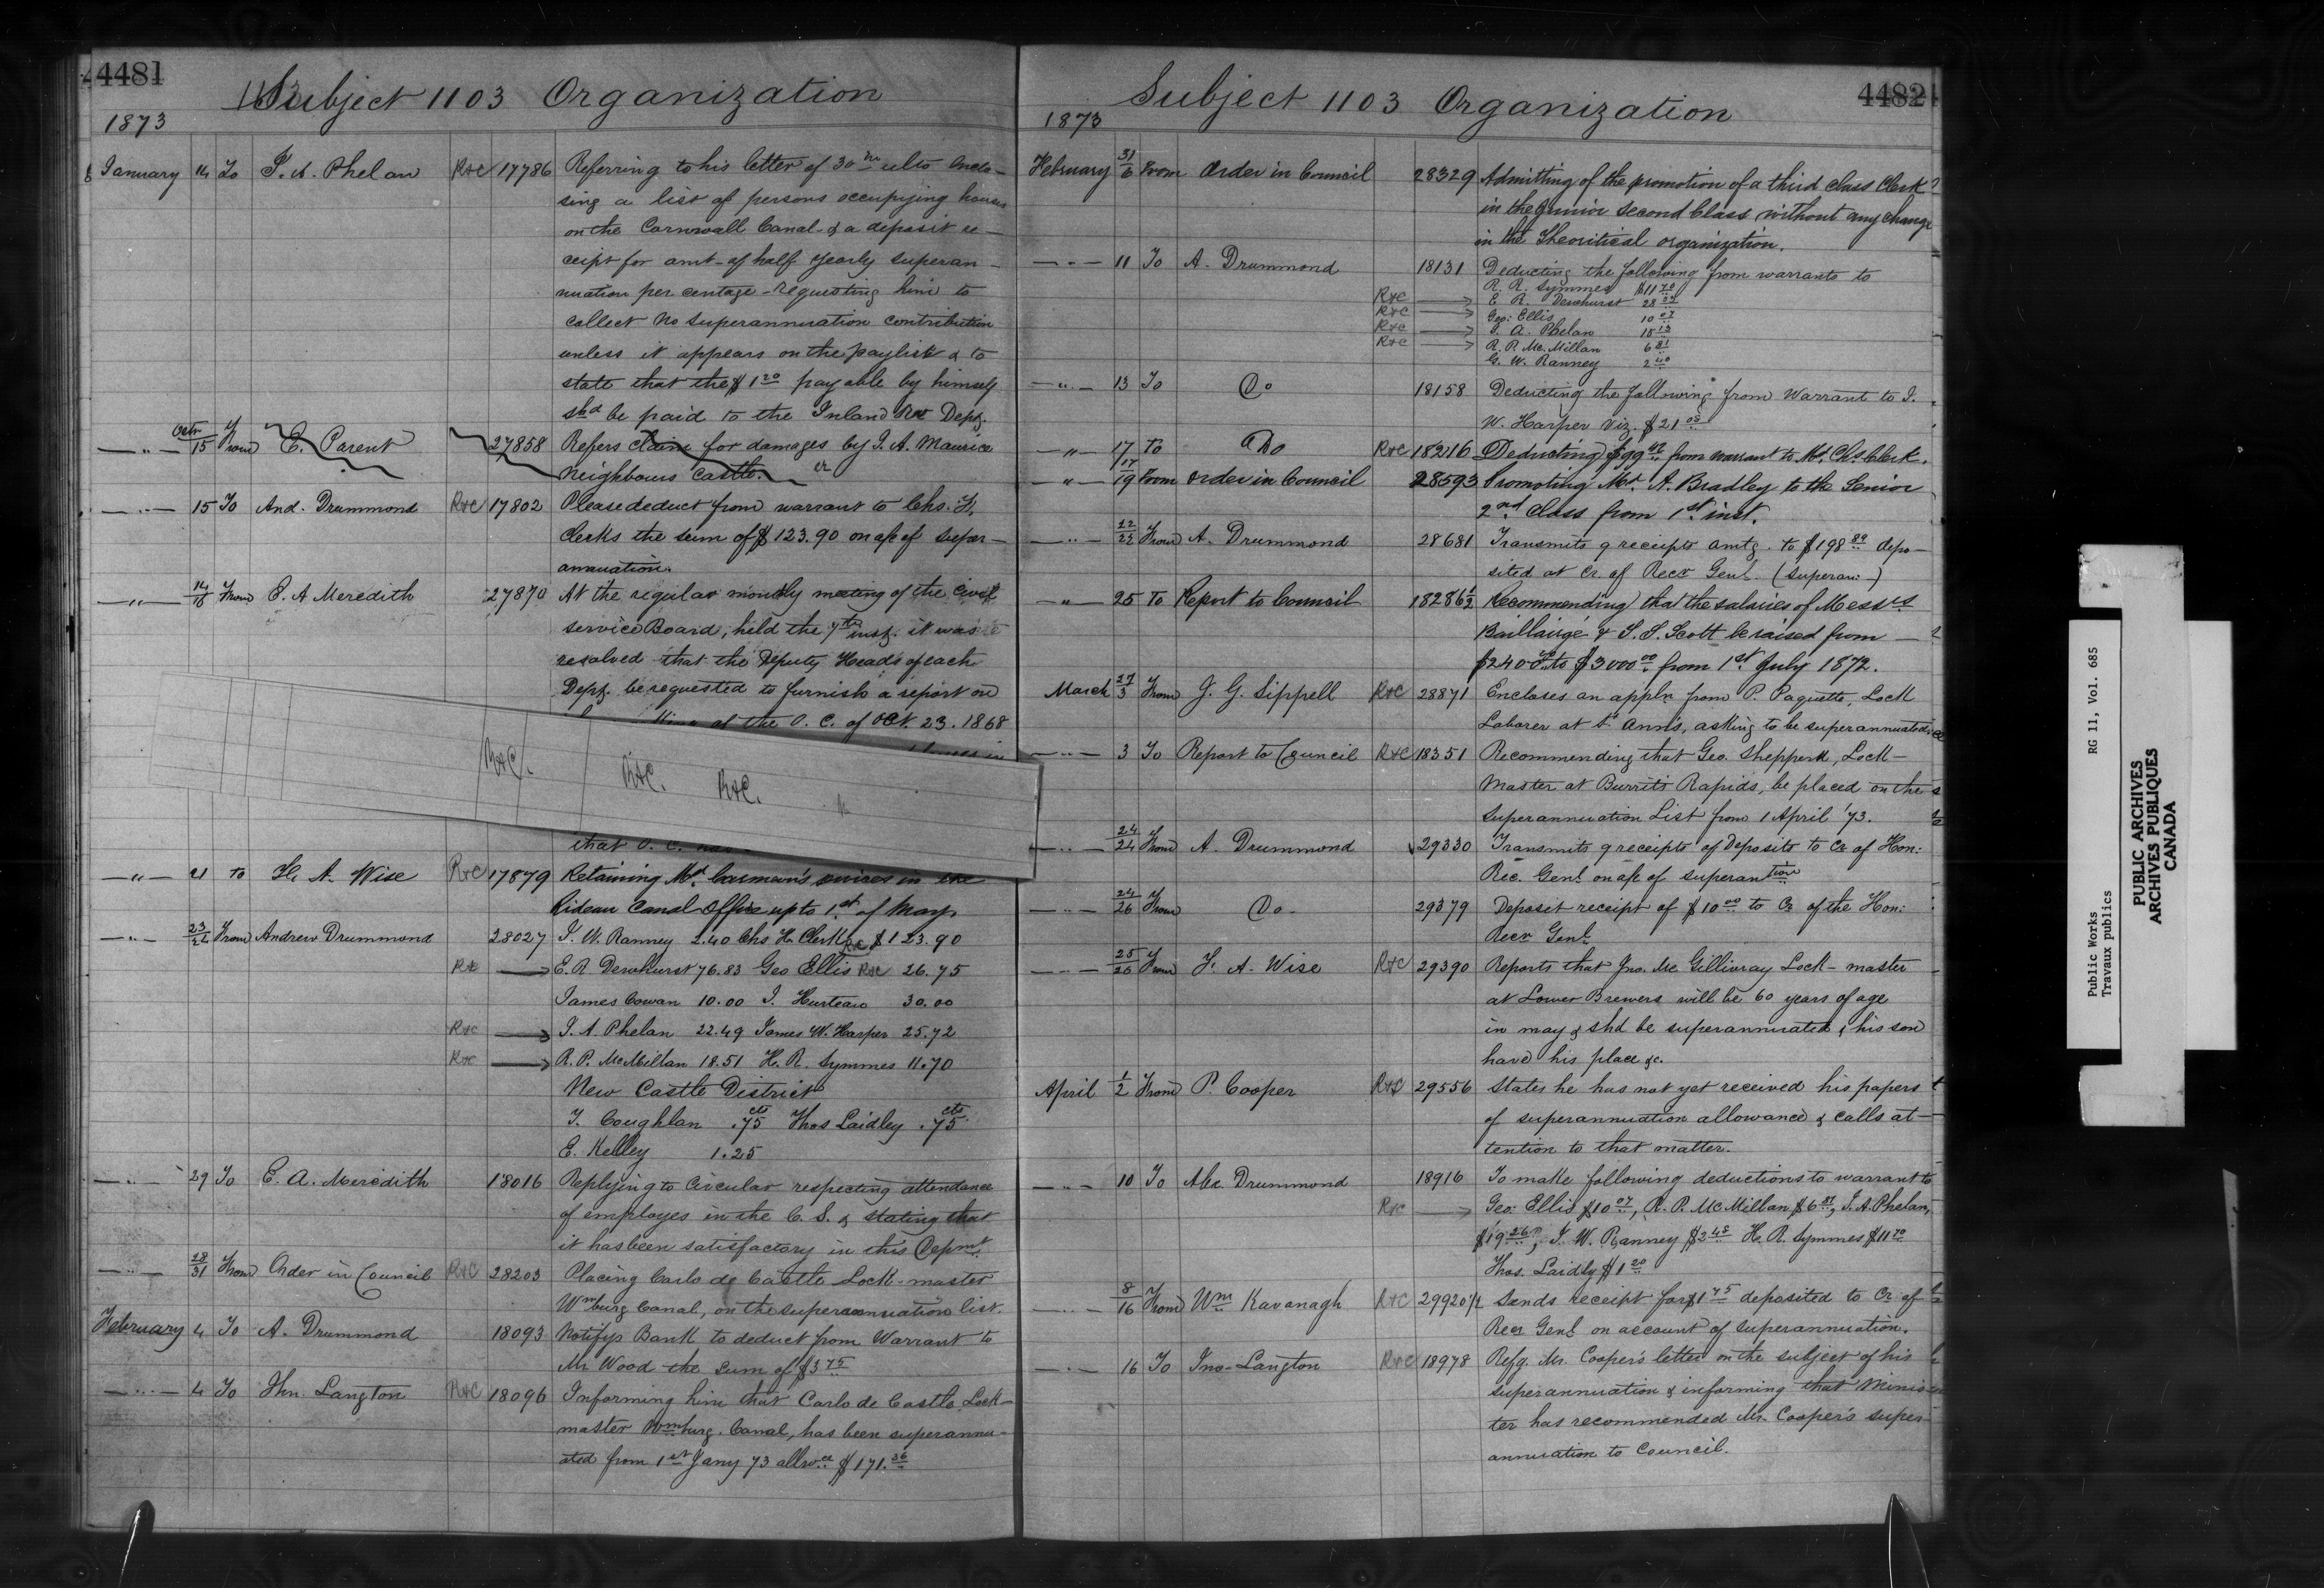 4481
Subject 1103 Organization
1873
January 14 To T. A. Phelan R&C 17786 Referring to his letter of 30th ulto enclo-
sing a list of persons occupying houses
on the Cornwall Canal & a deposit re-
ceipt for amt. of half yearly superan-
nuation per centage - requesting him to
collect no superannuation contribution
unless it appears on the paylist & to
state that the $1 20 payable by himself
shd be paid to the Inland Rev Dept.
15 From E. Parent 27858 Refers claim for damages by J. A. Maurice
Neighbours Castle.
15 To And. Drummond R&C 17802 Please deduct from warrant to Chs. H.
Clerks the sum of $123.90 on a/c of super-
annuation.
14/16 From E. A Meredith 27870 At the regular monthly meeting of the Civil
service Board, held the 7th inst. it was
resolved that the Deputy Heads of each
Dept. be requested to furnish a report on
at the O. C. of Oct. 23. 1868
R&C. R&C. R&C.
that O. C.
21 to F. A. Wise R&C 17879 Retaining Mr. Carman's services in the
Rideau Canal Office up to 1st of May.
23/24 From Andrew Drummond 28027 J. W. Ranney 2.40 Chs H. Clerk R&C $123.90
R&C E. R. Dewhurst 76.83 Geo Ellis R&C 26.75
James Cowan 10.00 J. Hurteau 30.00
R&C T. A. Phelan 22.49 James W. Harper 25.72
R&C R. P. McMillan 18.51 H. R. Symmes 11.70
New Castle District
T. Coughlan .75 cts Thos Laidley .75 cts
E. Kelley 1.25
29 To E. A. Meredith 18016 Replying to Circular respecting attendance
of employes in the C. S. & stating that
it has been satisfactory in this Depmt.
28/31 From Order in Council R&C 28203 Placing Carlo de Castle Lock-master
Wmburg Canal, on the superannuation list.
February 4 To A. Drummond 18093 Notifys Bank to deduct from Warrant to
Mr Wood the sum of $3 75
4 To Jhn. Langton R&C 18096 Informing him that Carlo de Castle Lock-
master Wmburg. Canal, has been superannu-
ated from 1st Jany 73 allwce $171.36
4482
Subject 1103 Organization
1873
February 31/6 From Order in Council 28329 Admitting of the promotion of a third class Clerk
in the Junior Second Class, without any change
in the Theoritical organization.
11 To A. Drummond 18131 Deducting the following from warrants to
R. R. Symmes $11 70
R&C E. R. Dewhurst 28
R&C Geo: Ellis 10 07
R&C T. A. Phelan
R&C R. P. Mc. Millan 6 81
G. W. Ranney 2 40
13 To Do 18158 Deducting the following from Warrant to J.
W. Harper viz. $21 08
17 To Do R&C 18216 Deducting $99 from warrant to Mr. Chs. Clerk.
17/19 From Order in Council 28593 Promoting Mr. A. Bradley to the Senior
2nd Class from 1st inst.
22/22 From A. Drummond 28681 Transmits 9 receipts amtg. to $198 89 depo-
sited at Cr. of Recr Genl. (Superan:-)
25 To Report to Council 18286½ Recommending that the salaries of Messrs
Baillairgé & T. S. Scott be raised from
$2400 to $3000 00 from 1st July 1872.
March 27/3 From J. G. Sippell R&C 28871 Encloses an appln from P. Paquette, Lock
Laborer at St Anns, asking to be superannuated
3 To Report to Council R&C 18351 Recommending that Geo. Shepperd, Lock-
Master at Burritts Rapids, be placed on the
superannuation List from 1 April '73.
24/24 From A. Drummond 29330 Transmits 9 receipts of Deposits to Cr of Hon:
Rec. Genl. on a/c of superantion
24/26 From Do. 29379 Deposit receipt of $10 00 to Cr of the Hon:
Recr Genl.
25/26 From F. A. Wise R&C 29390 Reports that Jno. Mc Gillivray Lock-master
at Lower Brewers will be 60 years of age
in may & shd be superannuated & his son
have his place &c.
April 1/2 From P. Cooper R&C 29556 States he has not yet received his papers
of superannuation allowance & calls at-
tention to that matter.
10 To Alex Drummond 18916 To make following deductions to warrant to
R&C Geo: Ellis $10 07, R. P. Mc Millan $6 81, T. A. Phelan,
$19 26, J. W. Ranney $2 48 H. R. Symmes $11 70
Thos. Laidly $1 20
8/16 From Wm Kavanagh R&C 29920½ Sends receipt for $1 75 deposited to Cr of
Recr Genl on account of superannuation.
16 To Jno-Langton R&C 18978 Refg. Mr. Cooper's letter on the subject of his
superannuation & informing that Minis-
ter has recommended Mr. Cooper's super-
annuation to Council.
Public Works RG 11, Vol. 685
Travaux publics
PUBLIC ARCHIVES
ARCHIVES PUBLIQUES
CANADA